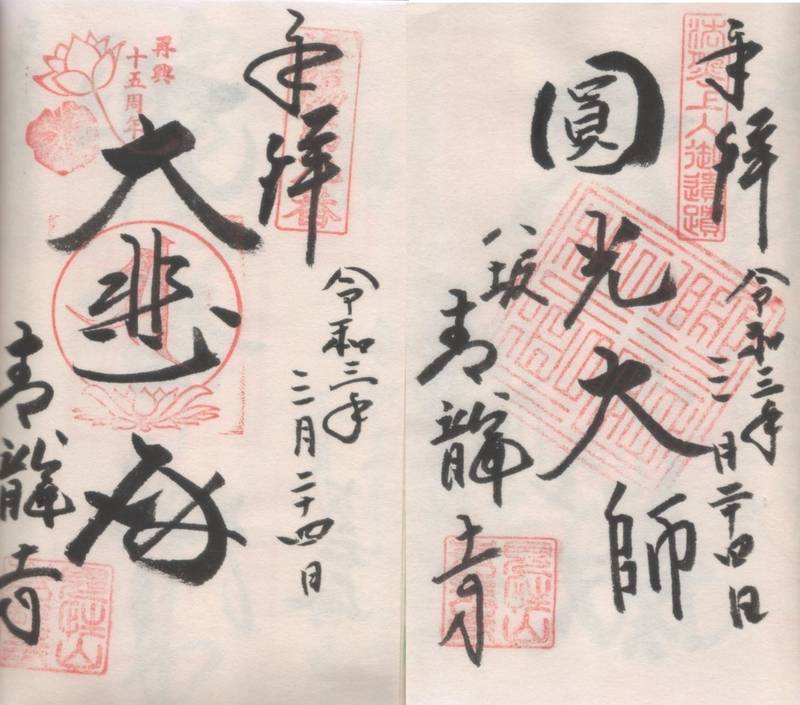 奉拝
法然上人御遺蹟
令和三年
三月二十四日
圓光大師
八坂
青龍寺
奉拝
令和三年
三月二十四日
再興
十五周年
大悲殿
青龍寺